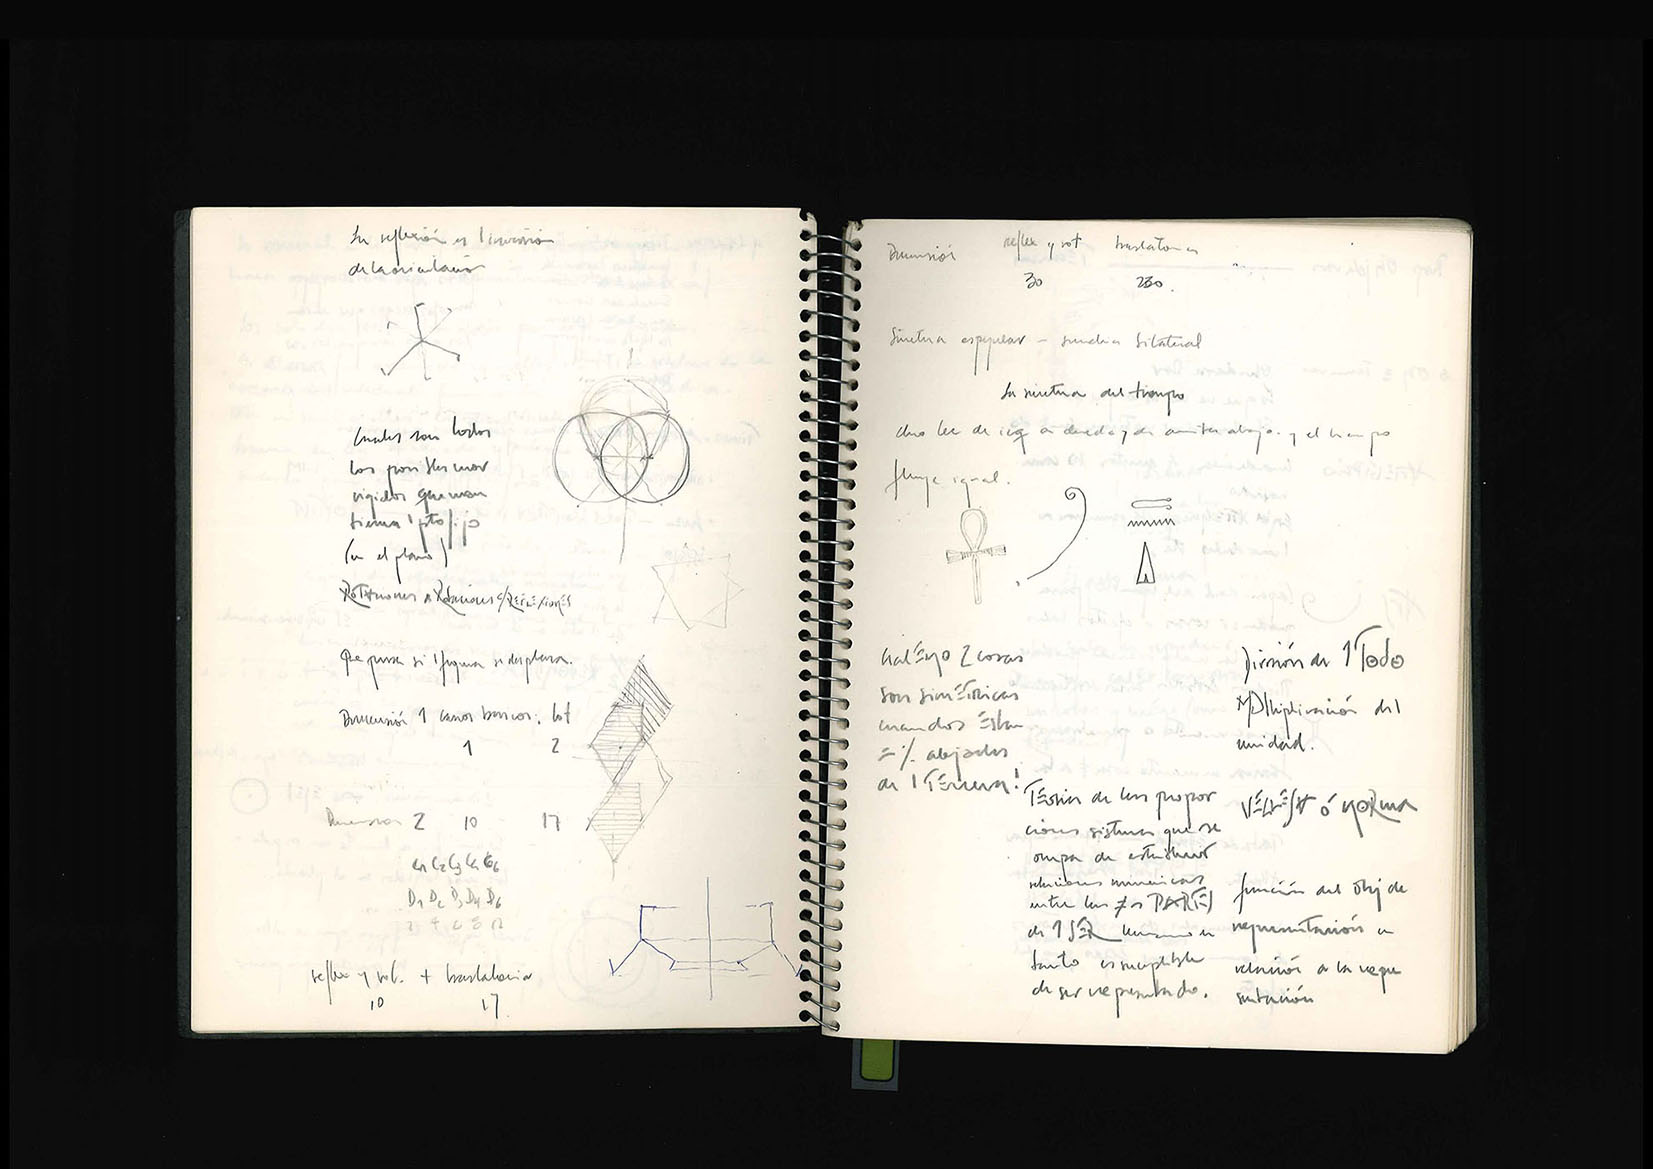 La reflexión es 1 inversión
de la orientación
Cuales son todos
los posibles mov
rigidos que man
tienen 1 pto fijo
(en el plano)
Rotaciones o Rotaciones c/Reflexiones
Que pasa si 1 figura se desplaza.
Dimensión 1 casos basicos. tot
1 2
Dimension 2 10 17
C1 C2 C3 C4 C6
D1 D2 D3 D4 D6
2 4 6 8 12
reflex y rot. + traslatoria
10 17.
Dimensión reflex y rot traslatorias
30 230.
Simetria especular - simetria bilateral
La simetria del tiempo
lee de izq a derecha y de arriba abajo. y el tiempo
fluye igual.
Galeno 2 cosas
son simétricas
cuando están
= % alejadas
de 1 Tercera!
Teoria de las propor
ciones sistema que se
ocupa de establecer
relaciones numericas
entre las ≠s PARTES
de 1 SER humano en
tanto es suceptible
de ser representado.
División de 1 Todo
Multiplicación de 1
unidad.
ó norma
función del obj de
representación en
relación a la repre
sentación